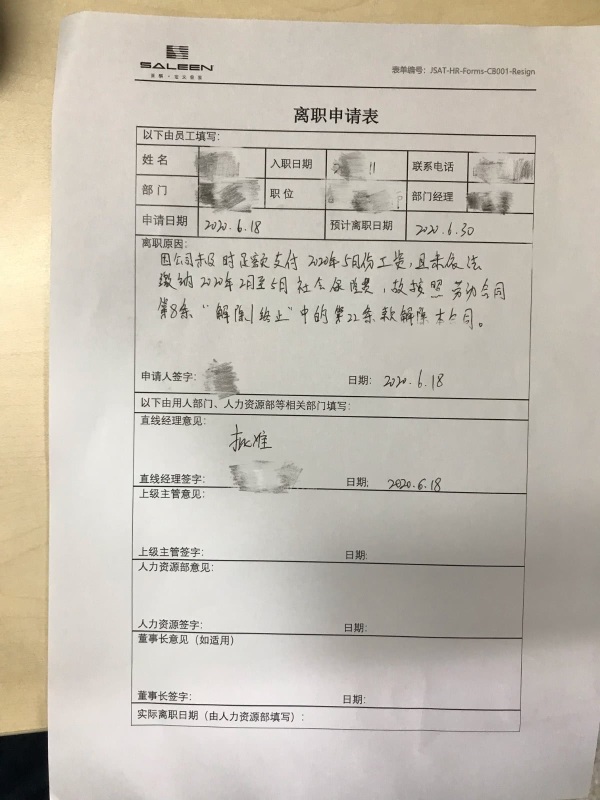 SALEEN
赛麟·宝云都客
表单编号：JSAT-HR-Forms-CB001-Resign
离职申请表
以下由员工填写：
姓名 入职日期 11 联系电话
部门 职位 部门经理
申请日期 2020.6.18 预计离职日期 2020.6.30
离职原因：
因公司未及时足额支付2020年5月份工资，且未依法
缴纳2020年2月至5月社会保险费，故按照劳动合同
第8条“解除/终止”中的第22条款解除本合同。
申请人签字： 日期：2020.6.18
以下由用人部门、人力资源部等相关部门填写：
直线经理意见：
批准
直线经理签字： 日期：2020.6.18
上级主管意见：
上级主管签字： 日期：
人力资源部意见：
人力资源签字： 日期：
董事长意见（如适用）
董事长签字： 日期：
实际离职日期（由人力资源部填写）：